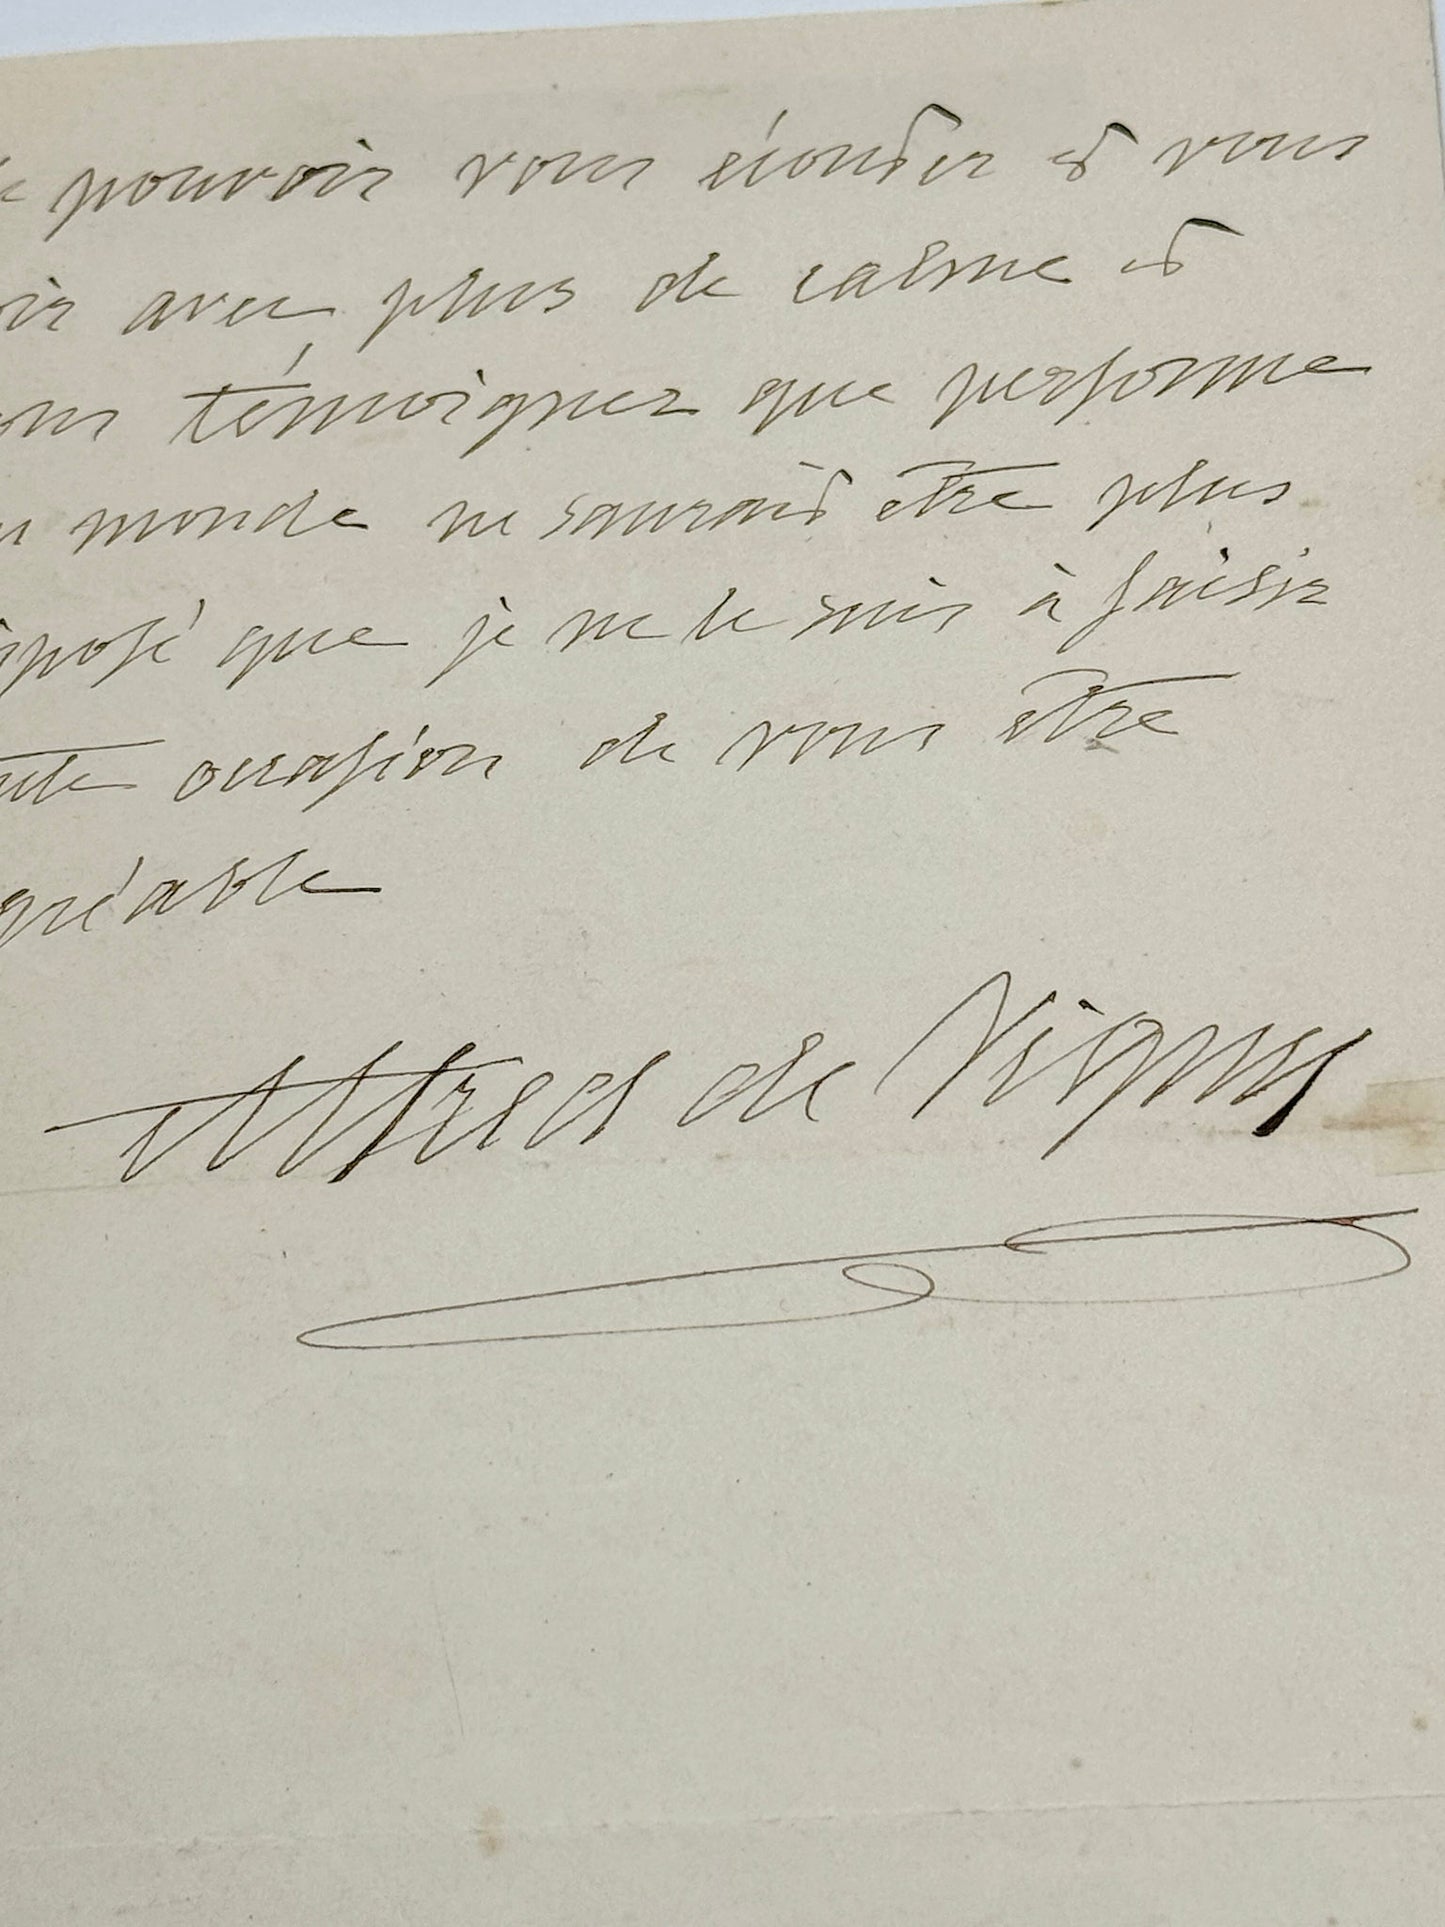 pouvoir vous écouter et vous
oir avec plus de calme et
ous témoigner que personne
monde ne saurait être plus
sposé que je ne le suis à saisir
oute occasion de vous être
gréable
Alfred de Vigny